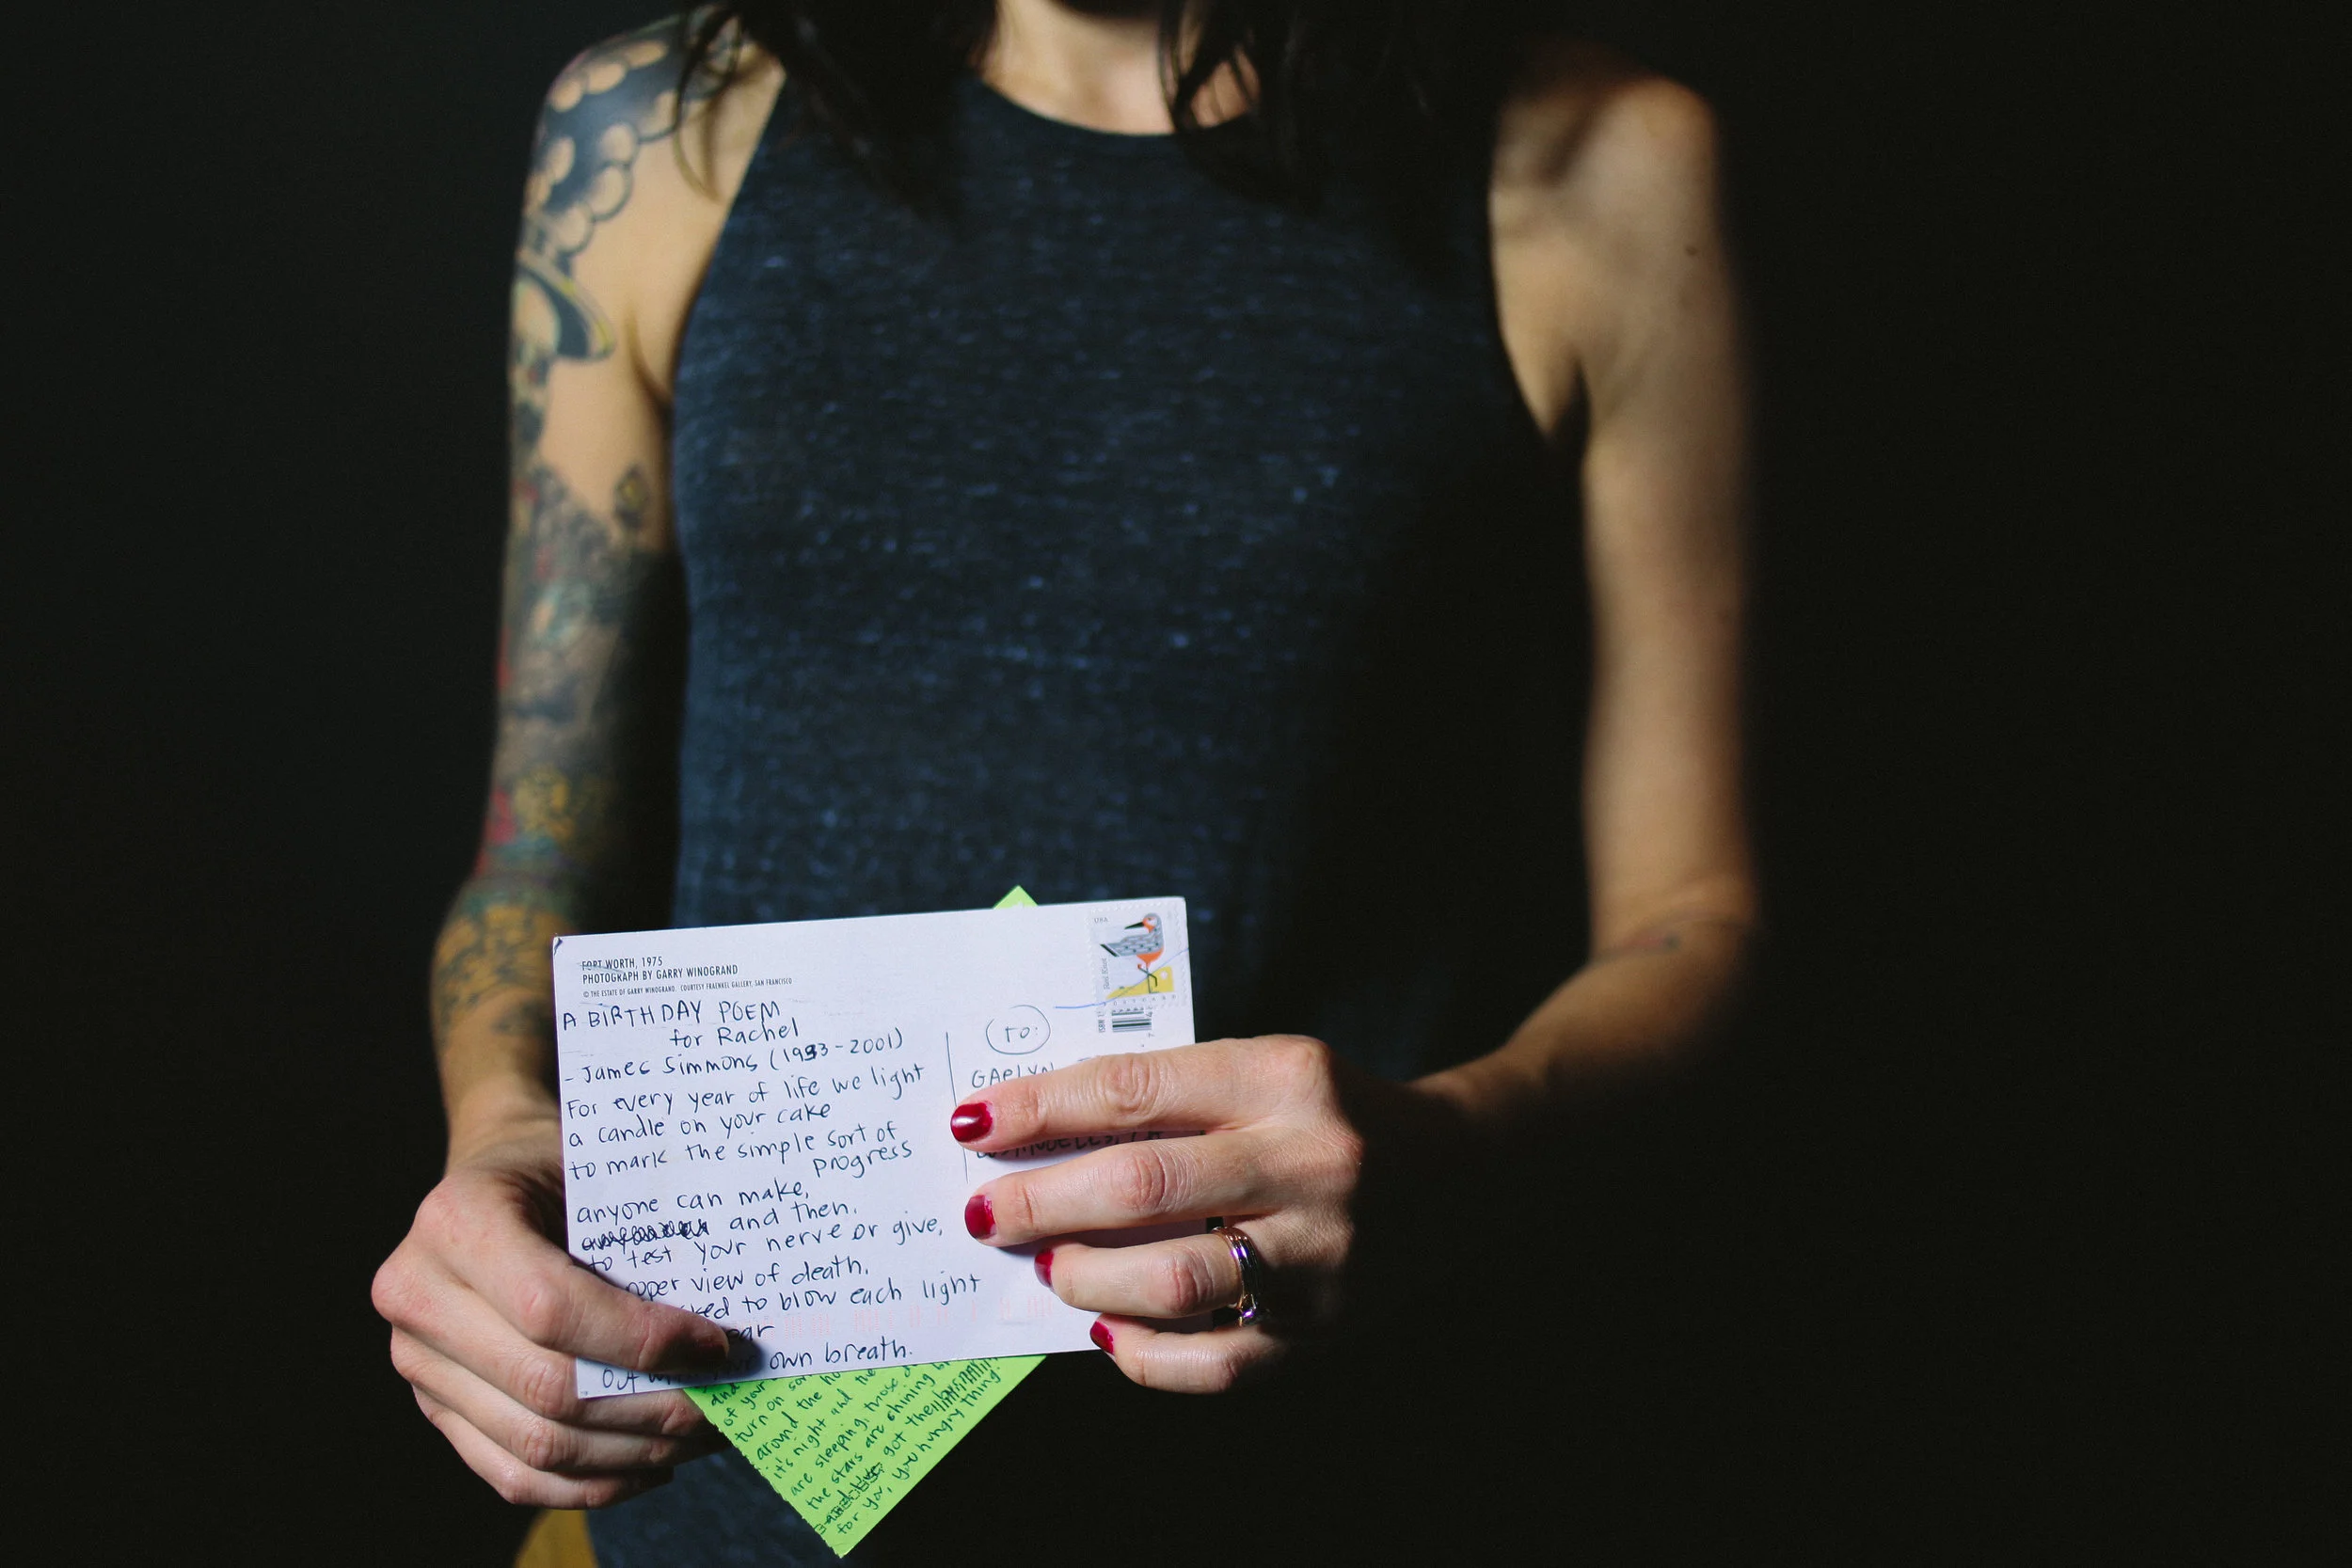 FORT WORTH, 1975
PHOTOGRAPH BY GARRY WINOGRAND
© THE ESTATE OF GARRY WINOGRAND. COURTESY FRAENKEL GALLERY, SAN FRANCISCO
USA
A BIRTHDAY POEM
for Rachel
- James Simmons (1933-2001)
For every year of life we light
a candle on your cake
to mark the simple sort of
progress
anyone can make,
and then,
to test your nerve or give,
view of death,
to blow each light
own breath.
TO:
of your
turn on
around the
it's night and the
are sleeping, those
the stars are shining
got their
for you, you hungry thing!